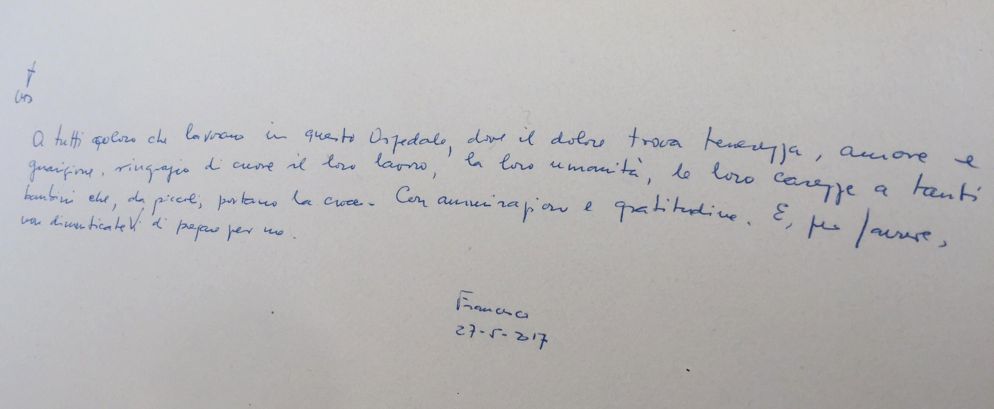 A tutti coloro che lavorano in questo Ospedale, dove il dolore trova tenerezza, amore e
guarigione, ringrazio di cuore il loro lavoro, la loro umanità, le loro carezze a tanti
bambini che, da piccoli, portano la croce. Con ammirazione e gratitudine. E, per favore,
non dimenticateVi di pregare per me.
Francesco
27-5-2017